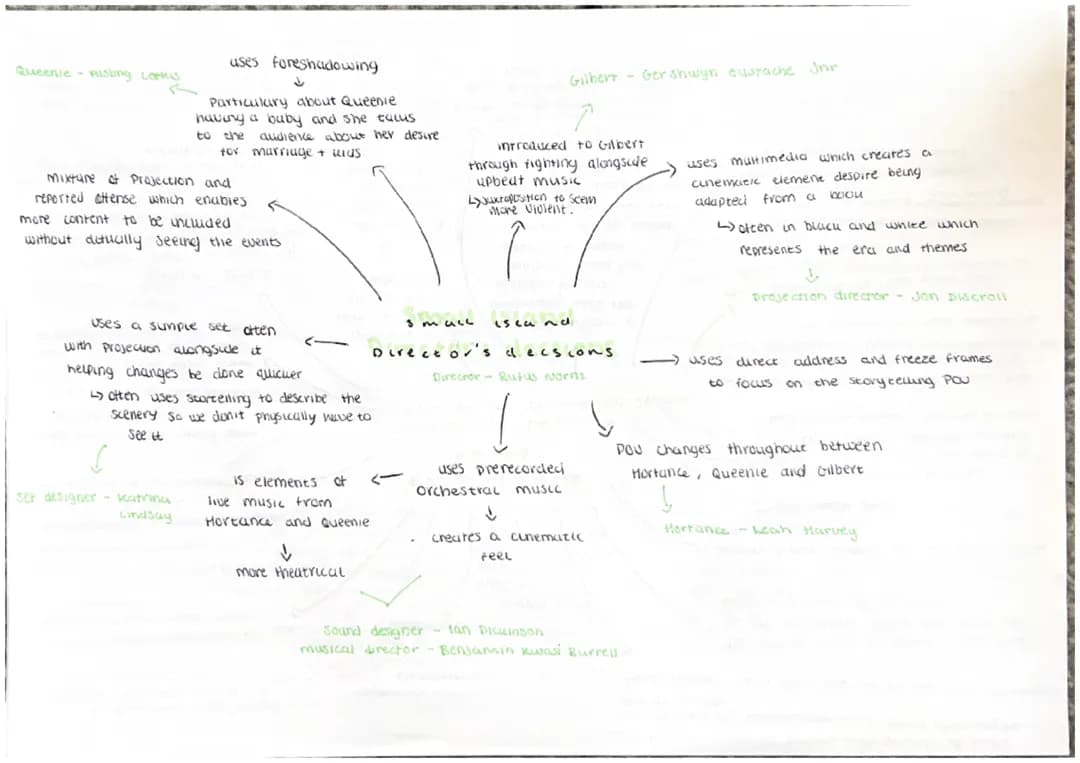 small island
Director's decsions
Director - Rufus Norris
uses foreshadowing
Particulary about Queenie
having a baby and she talks
to the audience about her desire
for marriage + kids
Queenie - Aisling Loftus
introduced to Gilbert
through fighting alongside
upbeat music
↳ juxtaposition to seem
more violent.
Gilbert - Gershwyn eustache Jnr
uses multimedia which creates a
cinematic element despite being
adapted from a book
↳ often in black and white which
represents the era and themes
Projection director - Jon Driscroll
uses direct address and freeze frames
to focus on the storytelling POV
POV changes throughout between
Hortance, Queenie and Gilbert
Hortance - Leah Harvey
uses prerecorded
orchestral music
creates a cinematic
feel
is elements of
live music from
Hortance and Queenie
more theatrical
Sound designer - Ian Dickinson
musical director - Benjannin Kwasi Burrell
uses a simple set often
with projection alongside it
helping changes be done quicker
↳ often uses to describe the
scenery so we don't physically have to
see it
Set designer - Katrina
Lindsay
mixture of Projection and
reported which enables
more content to be included
without actually seeing the events